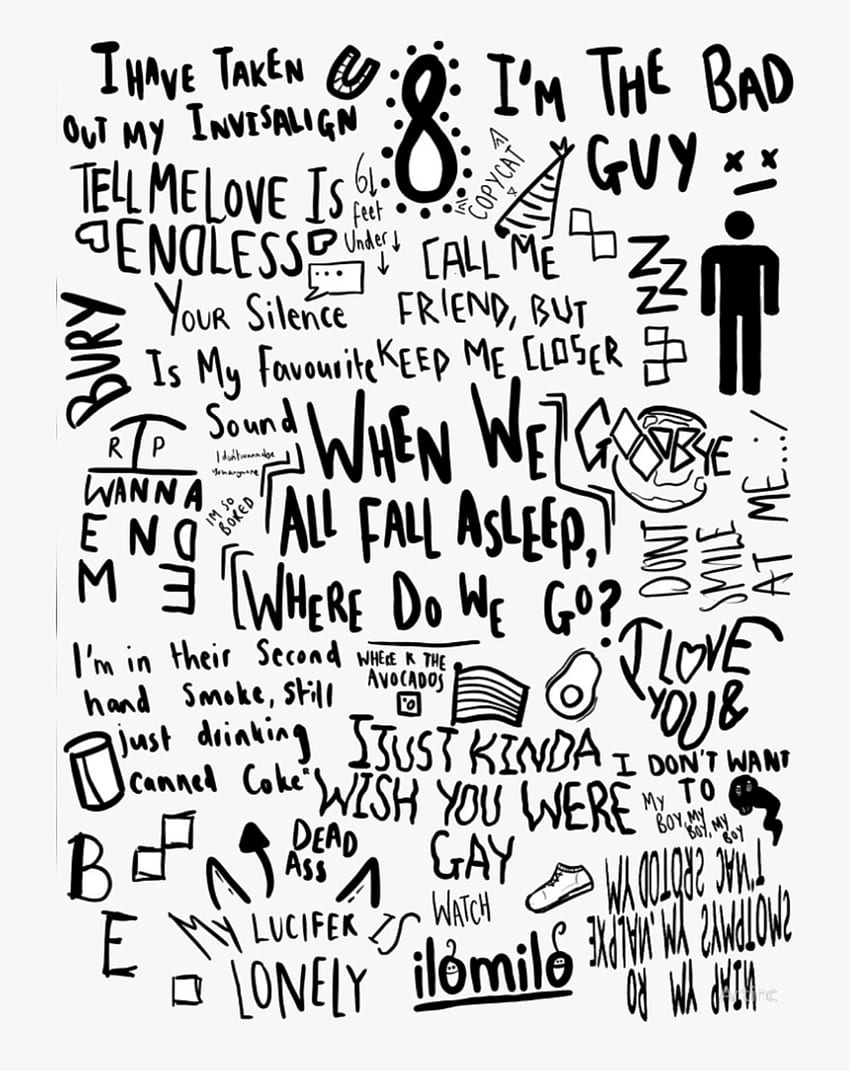 I HAVE TAKEN
OUT MY INVISALIGN
8
I'M THE BAD
GUY
TELL ME LOVE IS
ENDLESS
6
feet
Under
COPYCAT
...
CALL ME
FRIEND, BUT
KEEP ME CLOSER
ZZZ
Your Silence
Is My Favourite
Sound
BURY
I dont wanna be
You anymore
RIP
WANNA
END
ME
I'M SO
BORED
WHEN WE
ALL FALL ASLEEP,
WHERE DO WE GO?
GOODBYE
DONT
SMILE
AT ME...:/
I'm in their second
hand smoke, still
just drinking
canned Coke
WHERE R THE
AVOCADOS
I LOVE
YOU &
I JUST KINDA
WISH YOU WERE
GAY
I DON'T WANT
TO
B
E
MY
BOY, MY
BOY, MY
BOY
DEAD
ASS
MY LUCIFER IS
LONELY
WATCH
ilomilo
MY DOCTORS CAN'T
EXPLAIN MY SYMPTOMS
OR MY PAIN